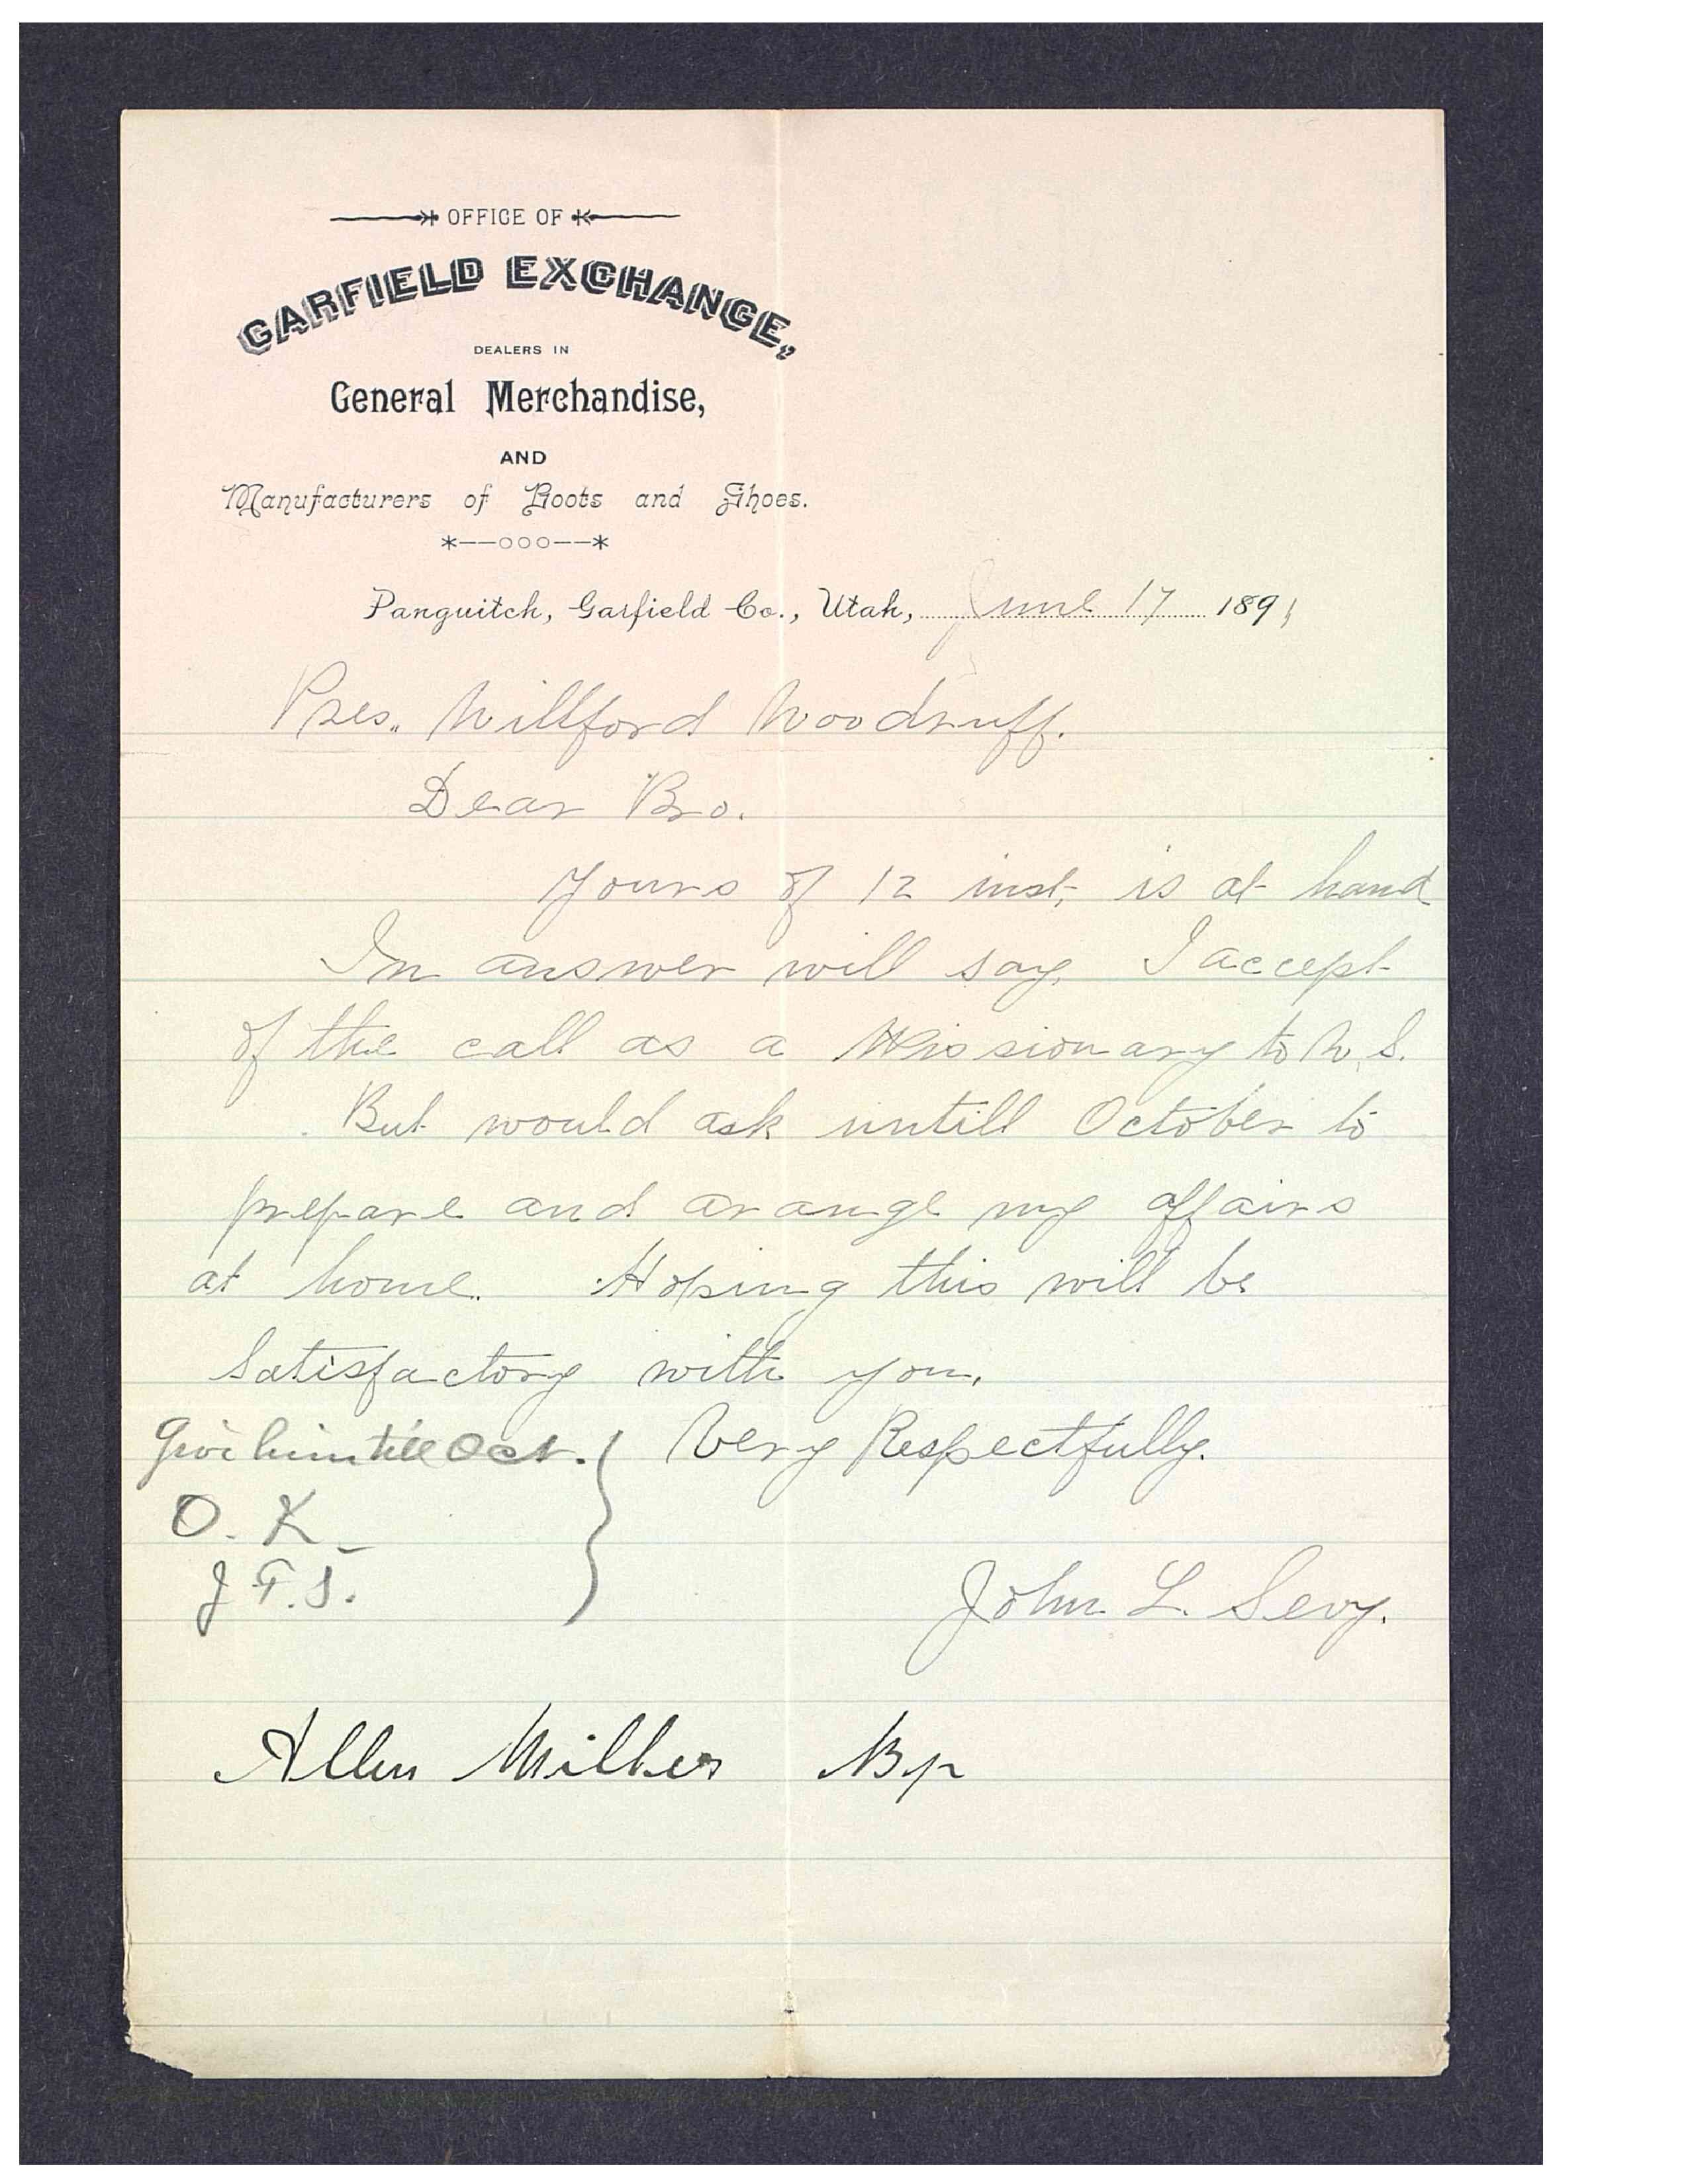 OFFICE OF
GARFIELD EXCHANGE,
DEALERS IN
General Merchandise,
AND
Manufacturers of Boots and Shoes.
Panguitch, Garfield Co., Utah, June 17 1891
Pres. Willford Woodruff.
Dear Bro.
Yours of 12 inst, is at hand
In answer will say, I accept
of the call as a Missionary to U. S.
But would ask untill October to
prepare and arange my affairs
at home. Hoping this will be
Satisfactory with you,
Very Respectfully.
Give him till Oct.
O. K.
J. F. S.
John L. Sevy.
Allen Miller Bp